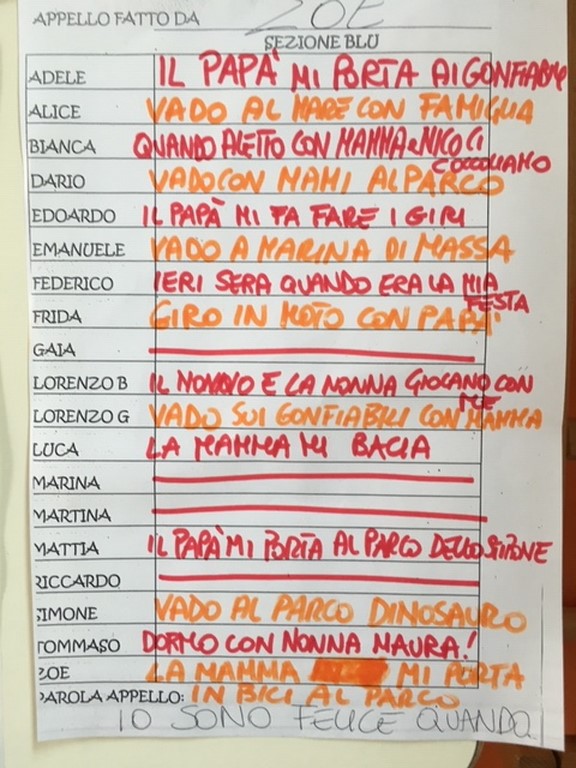 APPELLO FATTO DA ZOE
SEZIONE BLU
ADELE IL PAPÀ MI PORTA AI GONFIABILI
ALICE VADO AL MARE CON FAMIGLIA
BIANCA QUANDO A LETTO CON MAMMA e NICO CI
COCCOLIAMO
DARIO VADO CON MAMI AL PARCO
EDOARDO IL PAPÀ MI FA FARE I GIRI
EMANUELE VADO A MARINA DI MASSA
FEDERICO IERI SERA QUANDO ERA LA MIA
FESTA
FRIDA GIRO IN MOTO CON PAPÀ
GAIA
LORENZO B IL NONNO E LA NONNA GIOCANO CON
ME
LORENZO G VADO SUI GONFIABILI CON MAMMA
LUCA LA MAMMA MI BACIA
MARINA
MARTINA
MATTIA IL PAPÀ MI PORTA AL PARCO DELLO
RICCARDO
SIMONE VADO AL PARCO DINOSAURO
TOMMASO DORMO CON NONNA MAURA!
ZOE LA MAMMA MI PORTA
PAROLA APPELLO: IN BICI AL PARCO
IO SONO FELICE QUANDO